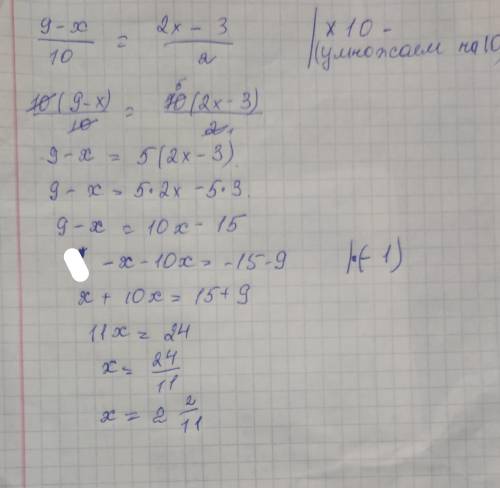 (9-x)/10 = (2x-3)/2 | x 10 - (умножаем на 10
10(9-x)/10 = 10(2x-3)/2 5 1
9-x = 5(2x-3)
9-x = 5·2x-5·3.
9-x = 10x-15
-x-10x=-15-9 |·(-1)
x+10x=15+9
11x=24
x= 24/11
x= 2 2/11